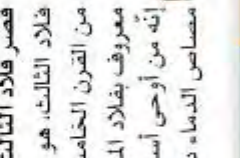 قصر فلاد الثالث
فلاد الثالث، هو
من القرن الخامس
معروف بفلاد
إنّه من أوحى
مصاص الدماء